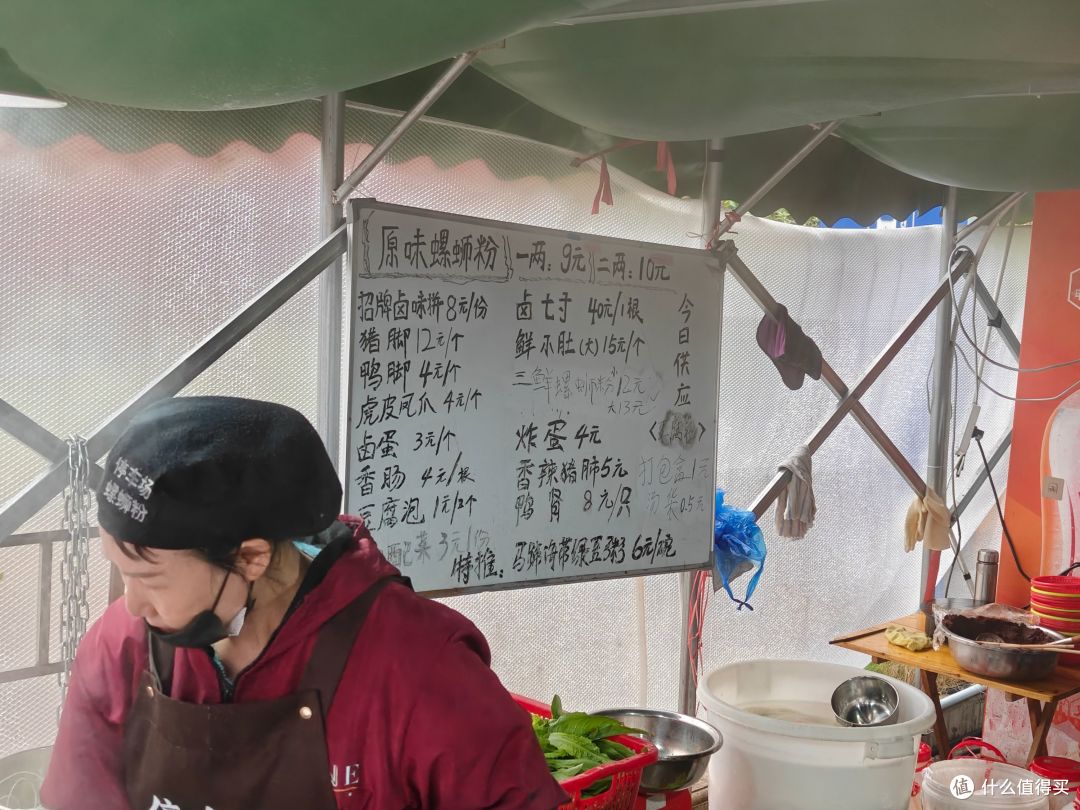 原味螺蛳粉 一两:9元 二两:10元
招牌卤味拼 8元/份
猪脚 12元/个
鸭脚 4元/个
虎皮凤爪 4元/个
卤蛋 3元/个
香肠 4元/根
豆腐泡 1元/2个
配菜 3元/份
卤七寸 40元/1根
鲜小肚(大) 15元/个
三鲜螺蛳粉 小12元
大13元
炸蛋 4元
香辣猪肺 5元
鸭肾 8元/只
今日供应
打包盒 1元
汤袋 0.5元
特推:马蹄海带绿豆粥 6元/碗
停车场
螺蛳粉
NE
值 什么值得买